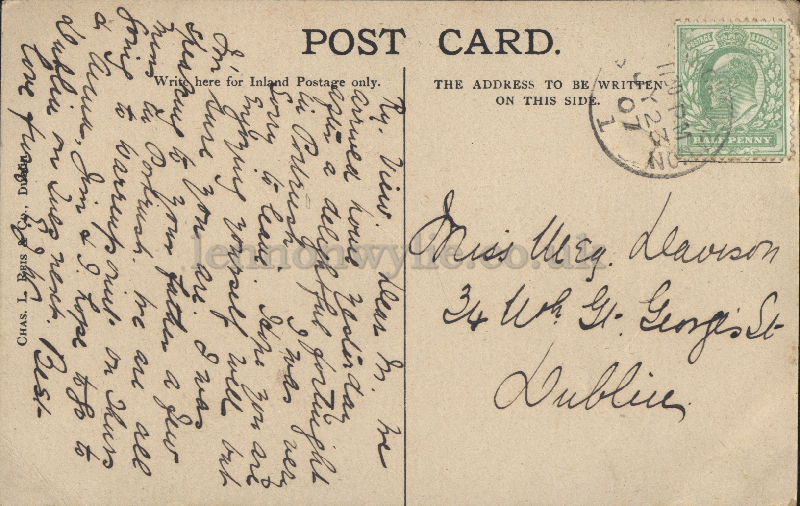 POST CARD.
Write here for Inland Postage only.
THE ADDRESS TO BE WRITTEN
ON THIS SIDE.
Ry. View. Dear M. We
arrived home yesterday
after a delightful fortnight
in Portrush I was very
sorry to leave. Hope you are
enjoying yourself well but
I'm sure you are. I was
speaking to your Father a few
mins in Portrush. We are all
going to Warrenpoint on Thurs
Jim & I hope to go to
Dublin on Tues next. Best
love from
Miss Meg. Davison
34 Nth. Gt. George's St
Dublin.
POSTAGE & REVENUE
HALF PENNY
PM
JY 23
07
1
CHAS. L. REIS & CO., DUBLIN.
lennonwylie.co.uk